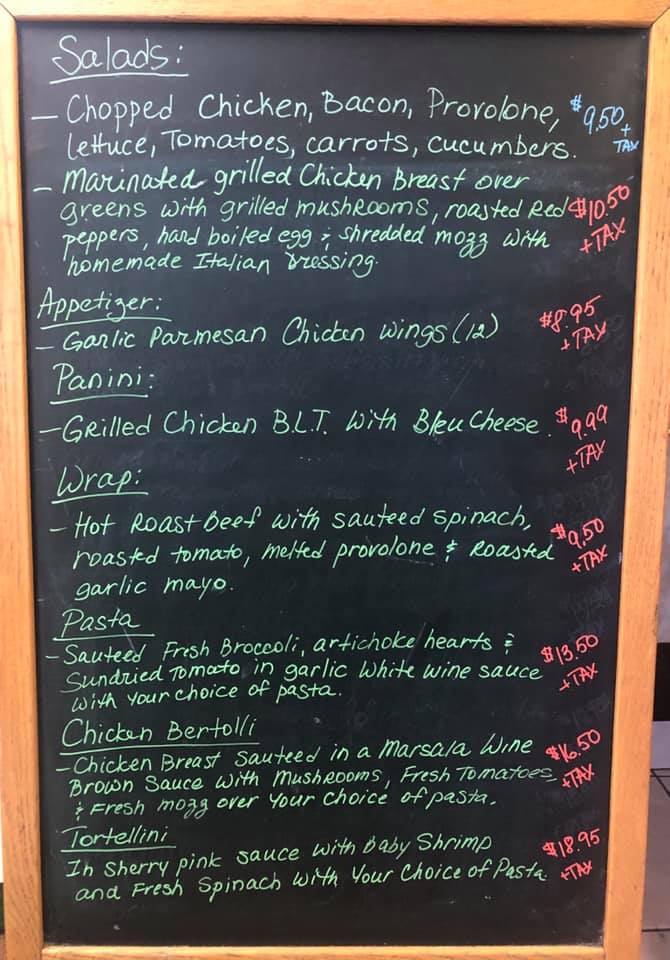 Salads:
- Chopped Chicken, Bacon, Provolone, $9.50
lettuce, Tomatoes, carrots, cucumbers. + TAX
- Marinated grilled Chicken Breast over
greens with grilled mushrooms, roasted Red $10.50
peppers, hard boiled egg & shredded mozz with + TAX
homemade Italian Dressing.
Appetizer:
- Garlic Parmesan Chicken wings (12) $8.95
+ TAX
Panini:
- Grilled Chicken B.L.T. with Bleu Cheese. $9.99
+ TAX
Wrap:
- Hot Roast Beef with sauteed spinach,
roasted tomato, melted provolone & Roasted $9.50
garlic mayo. + TAX
Pasta
- Sauteed Fresh Broccoli, artichoke hearts &
Sundried Tomato in garlic White wine sauce $13.50
with your choice of pasta. + TAX
Chicken Bertolli
- Chicken Breast Sauteed in a Marsala Wine $16.50
Brown Sauce with Mushrooms, Fresh Tomatoes, + TAX
& Fresh mozz over your choice of pasta.
Tortellini
In Sherry pink sauce with Baby Shrimp $18.95
and Fresh Spinach with Your Choice of Pasta + TAX